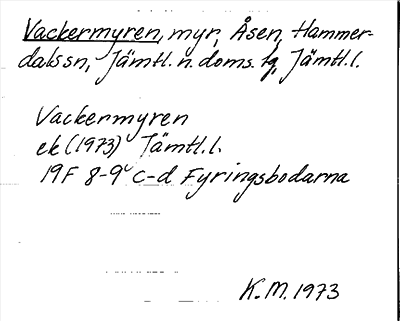 Vackermyren, myr, Åsen, Hammer-
dals sn, Jämtl. n. doms. tg, Jämtl. l.
Vackermyren
ek (1973) Jämtl. l.
19F 8-9 c-d Fyringsbodarna
K.M. 1973